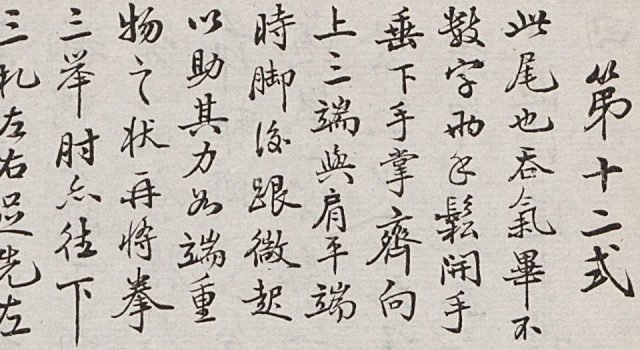 第十二式
此尾也吞氣畢不
数字両手鬆開手
垂下手掌齊向
上三端與肩平端
時脚後跟微起
以助其力如端重
物之状再將拳
三举肘亦往下
三扎左右足先左